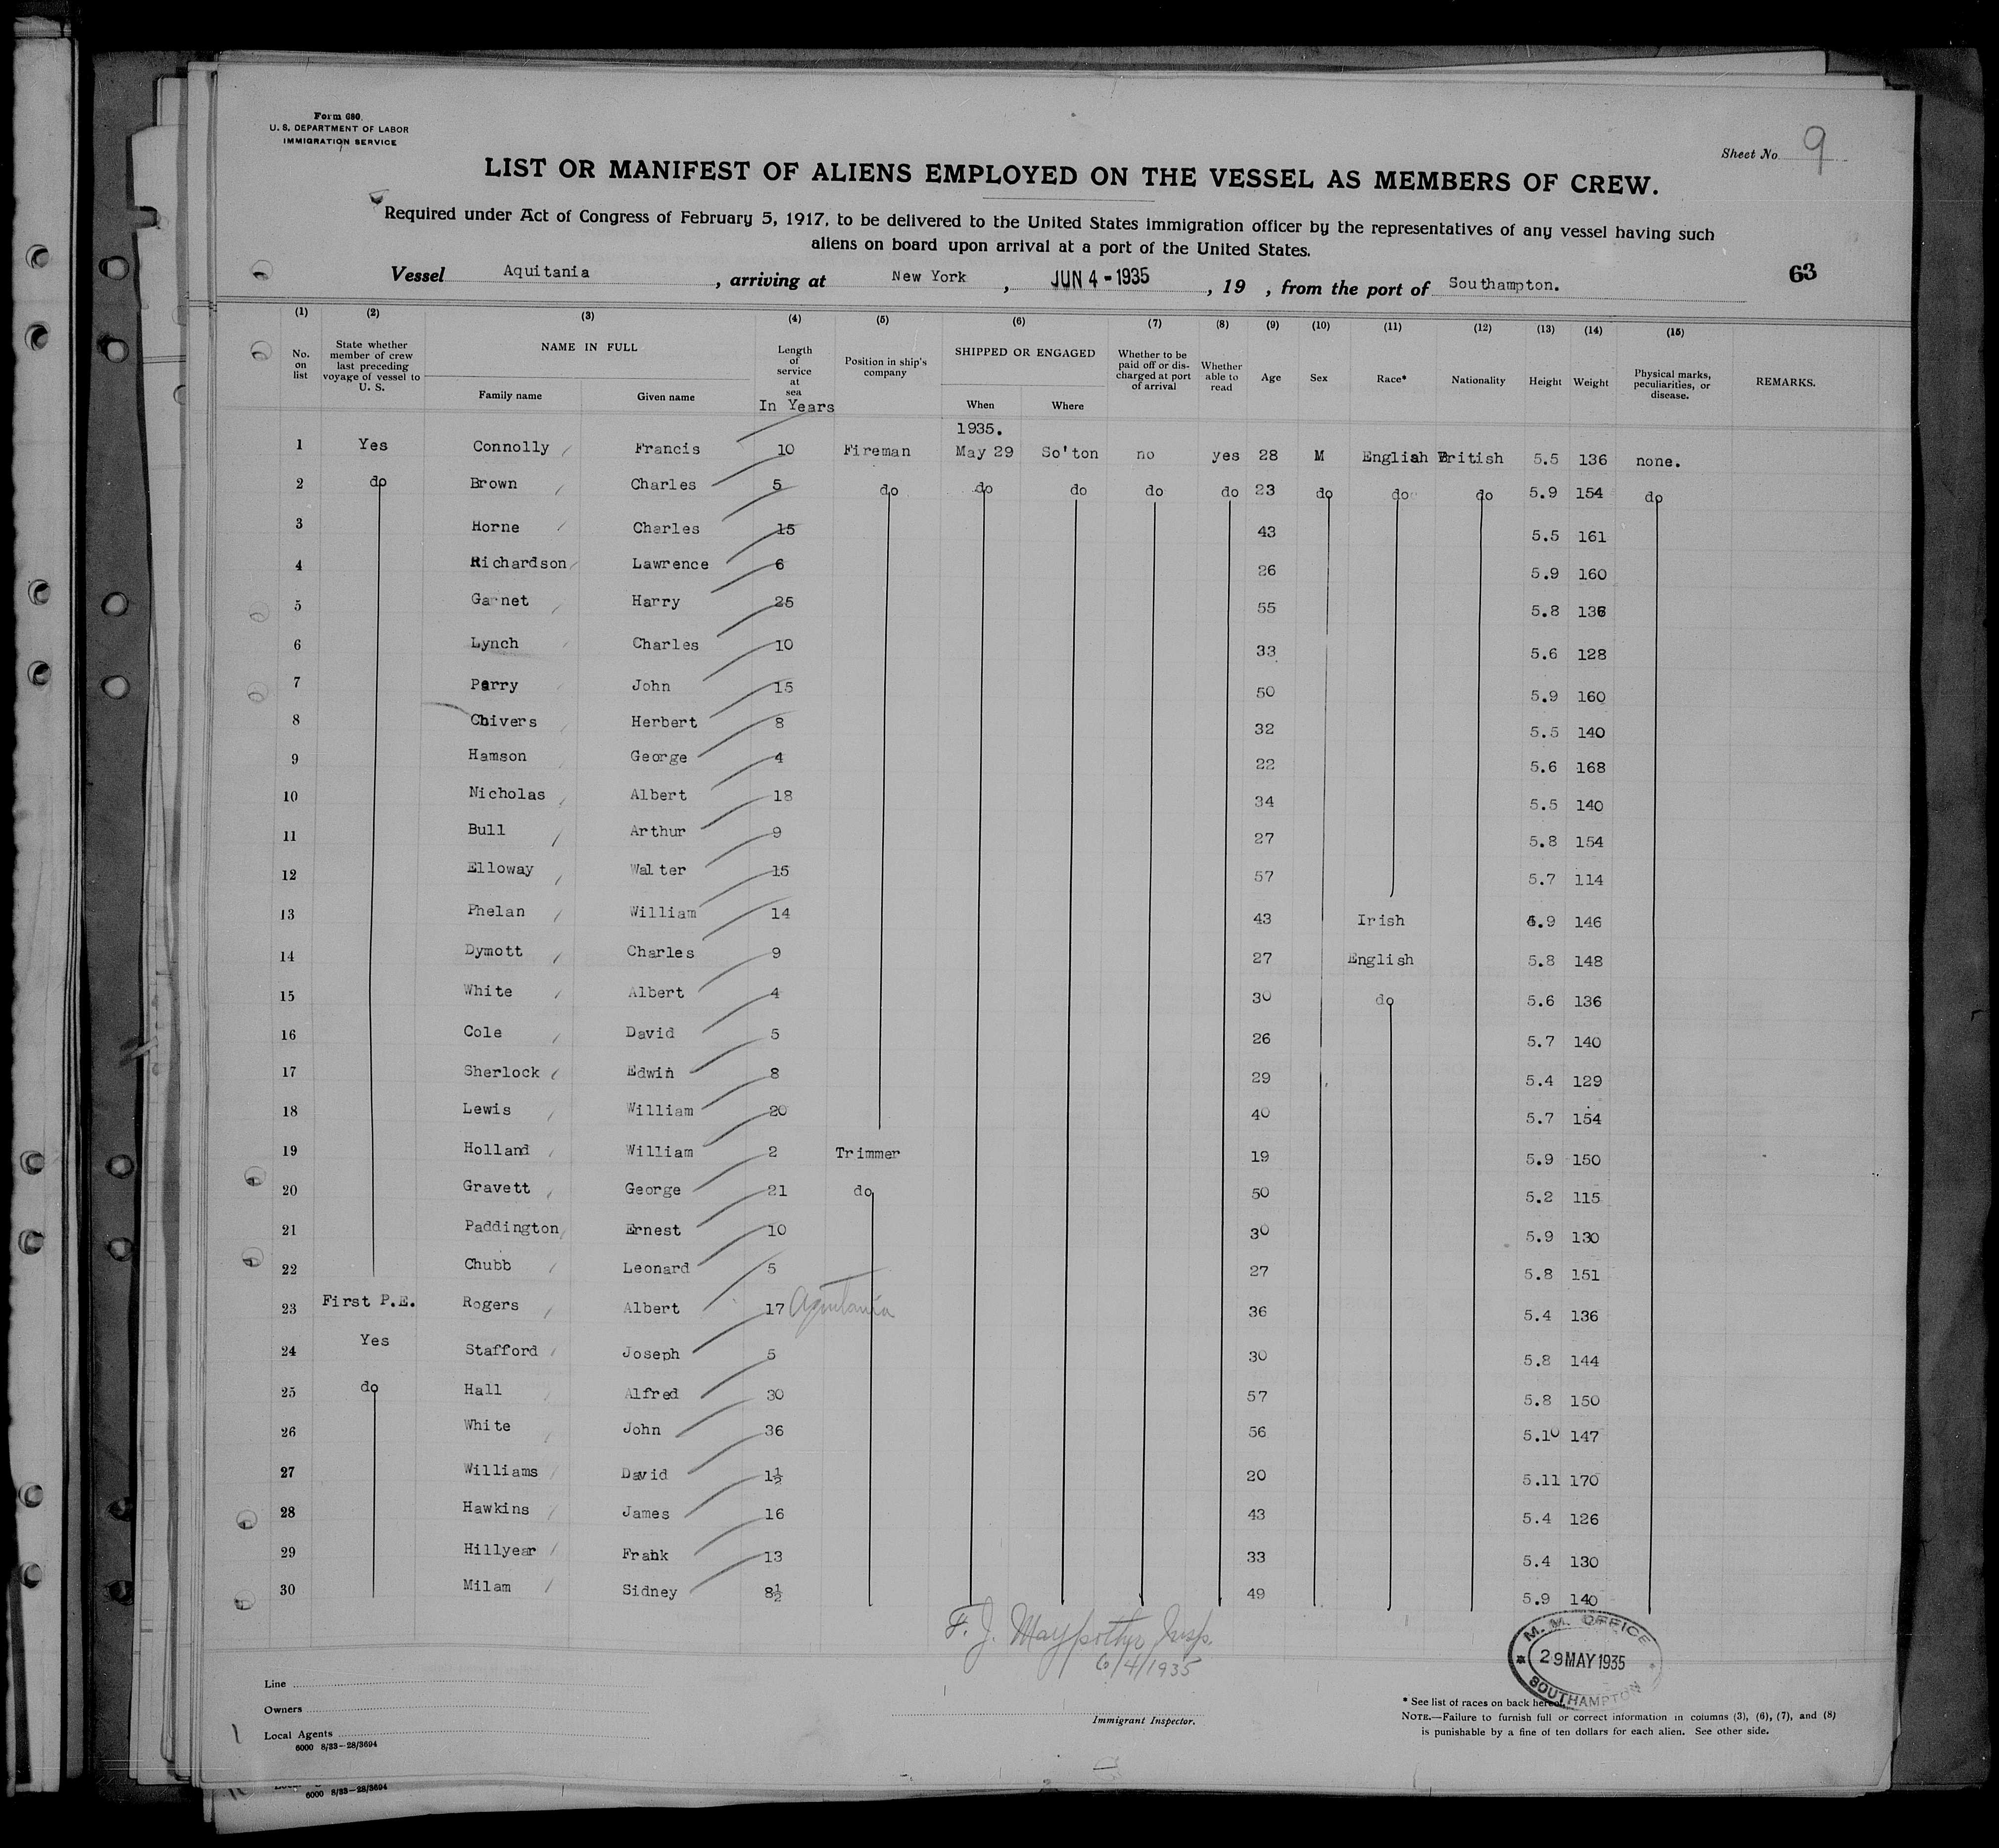 Form 680.
U. S. DEPARTMENT OF LABOR
IMMIGRATION SERVICE
Sheet No. 9
LIST OR MANIFEST OF ALIENS EMPLOYED ON THE VESSEL AS MEMBERS OF CREW.
Required under Act of Congress of February 5, 1917, to be delivered to the United States immigration officer by the representatives of any vessel having such
aliens on board upon arrival at a port of the United States.
63
Vessel Aquitania, arriving at New York, JUN 4 - 1935, 19 , from the port of Southampton.
(1) (2) (3) (4) (5) (6) (7) (8) (9) (10) (11) (12) (13) (14) (15)
No. on list State whether member of crew last preceding voyage of vessel to U. S. NAME IN FULL Family name Given name Length of service at sea In Years Position in ship's company SHIPPED OR ENGAGED When Where Whether to be paid off or discharged at port of arrival Whether able to read Age Sex Race* Nationality Height Weight Physical marks, peculiarities, or disease. REMARKS.
1935.
1 Yes Connolly Francis 10 Fireman May 29 So'ton no yes 28 M English British 5.5 136 none.
2 do Brown Charles 5 do do do do do 23 do do do 5.9 154 do
3 Horne Charles 15 43 5.5 161
4 Richardson Lawrence 6 26 5.9 160
5 Garnet Harry 25 55 5.8 136
6 Lynch Charles 10 33 5.6 128
7 Parry John 15 50 5.9 160
8 Chivers Herbert 8 32 5.5 140
9 Hamson George 4 22 5.6 168
10 Nicholas Albert 18 34 5.5 140
11 Bull Arthur 9 27 5.8 154
12 Elloway Walter 15 57 5.7 114
13 Phelan William 14 43 Irish 5.9 146
14 Dymott Charles 9 27 English 5.8 148
15 White Albert 4 30 do 5.6 136
16 Cole David 5 26 5.7 140
17 Sherlock Edwin 8 29 5.4 129
18 Lewis William 20 40 5.7 154
19 Holland William 2 Trimmer 19 5.9 150
20 Gravett George 21 do 50 5.2 115
21 Paddington Ernest 10 30 5.9 130
22 Chubb Leonard 5 27 5.8 151
23 First P.E. Rogers Albert 17 Aquitania 36 5.4 136
24 Yes Stafford Joseph 5 30 5.8 144
25 do Hall Alfred 30 57 5.8 150
26 White John 36 56 5.10 147
27 Williams David 1½ 20 5.11 170
28 Hawkins James 16 43 5.4 126
29 Hillyear Frank 13 33 5.4 130
30 Milam Sidney 8½ 49 5.9 140
F. J. Insp.
6/4/1935
M. M. OFFICE
29 MAY 1935
SOUTHAMPTON
Line
Owners
Local Agents
6000 8/33—28/3694
Immigrant Inspector.
* See list of races on back hereof.
NOTE.—Failure to furnish full or correct information in columns (3), (6), (7), and (8)
is punishable by a fine of ten dollars for each alien. See other side.
6000 8/33—28/3694